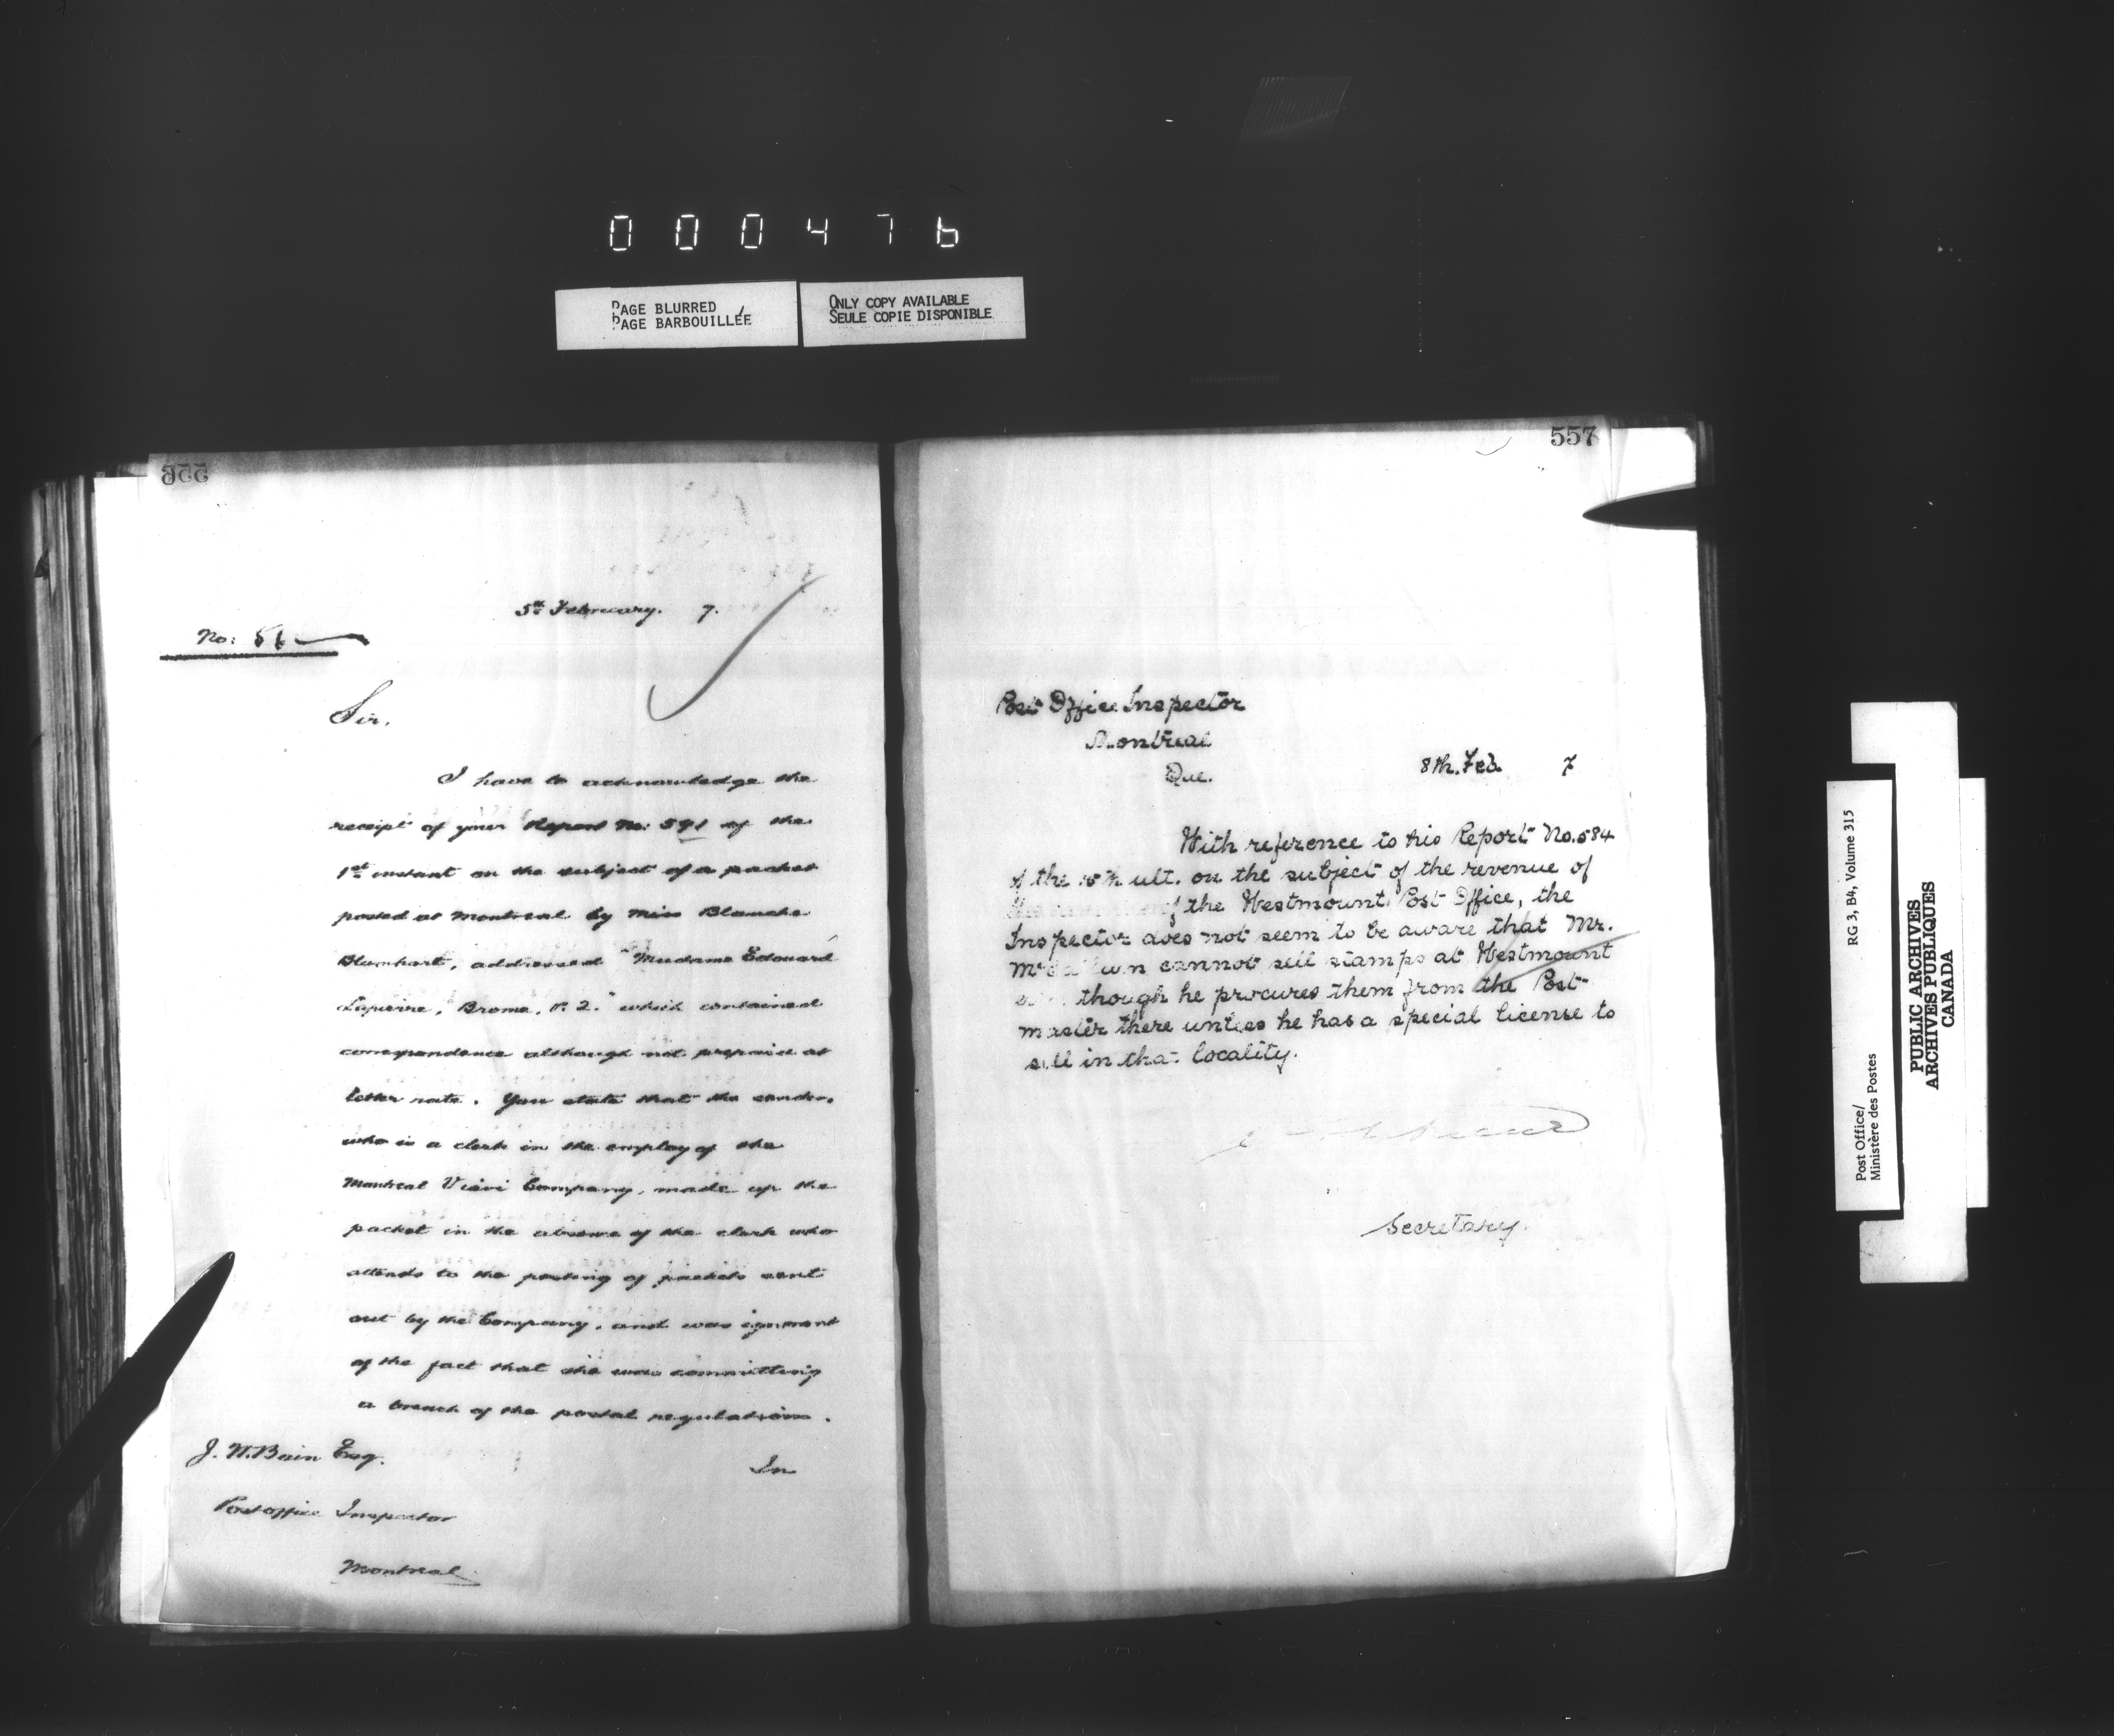 000476
PAGE BLURRED
PAGE BARBOUILLÉE
ONLY COPY AVAILABLE
SEULE COPIE DISPONIBLE
556
5th February. 7.
No: 51
Sir,
I have to acknowledge the
receipt of your Report No: 591 of the
1st instant on the subject of a packet
posted at Montreal by Miss Blanche
Blumhart, addressed "Madame Edouard
Lapierre, Brome, P. 2." which contained
correspondence although not prepaid at
letter rate. You state that the sender,
who is a clerk in the employ of the
Montreal Viavi Company, made up the
packet in the absence of the clerk who
attends to the posting of packets sent
out by the Company, and was ignorant
of the fact that she was committing
a breach of the postal regulations.
J. W. Bain Esq.
In
Post office Inspector
Montreal
557
Post Office Inspector
Montreal
Que.
8th. Feb. 7
With reference to his Report No. 584
of the 15th ult. on the subject of the revenue of
of the Westmount Post Office, the
Inspector does not seem to be aware that Mr.
cannot sell stamps at Westmount
though he procures them from the Post-
master there unless he has a special license to
sell in that locality.
Secretary.
RG 3, B4, Volume 315
Post Office/
Ministère des Postes
PUBLIC ARCHIVES
ARCHIVES PUBLIQUES
CANADA